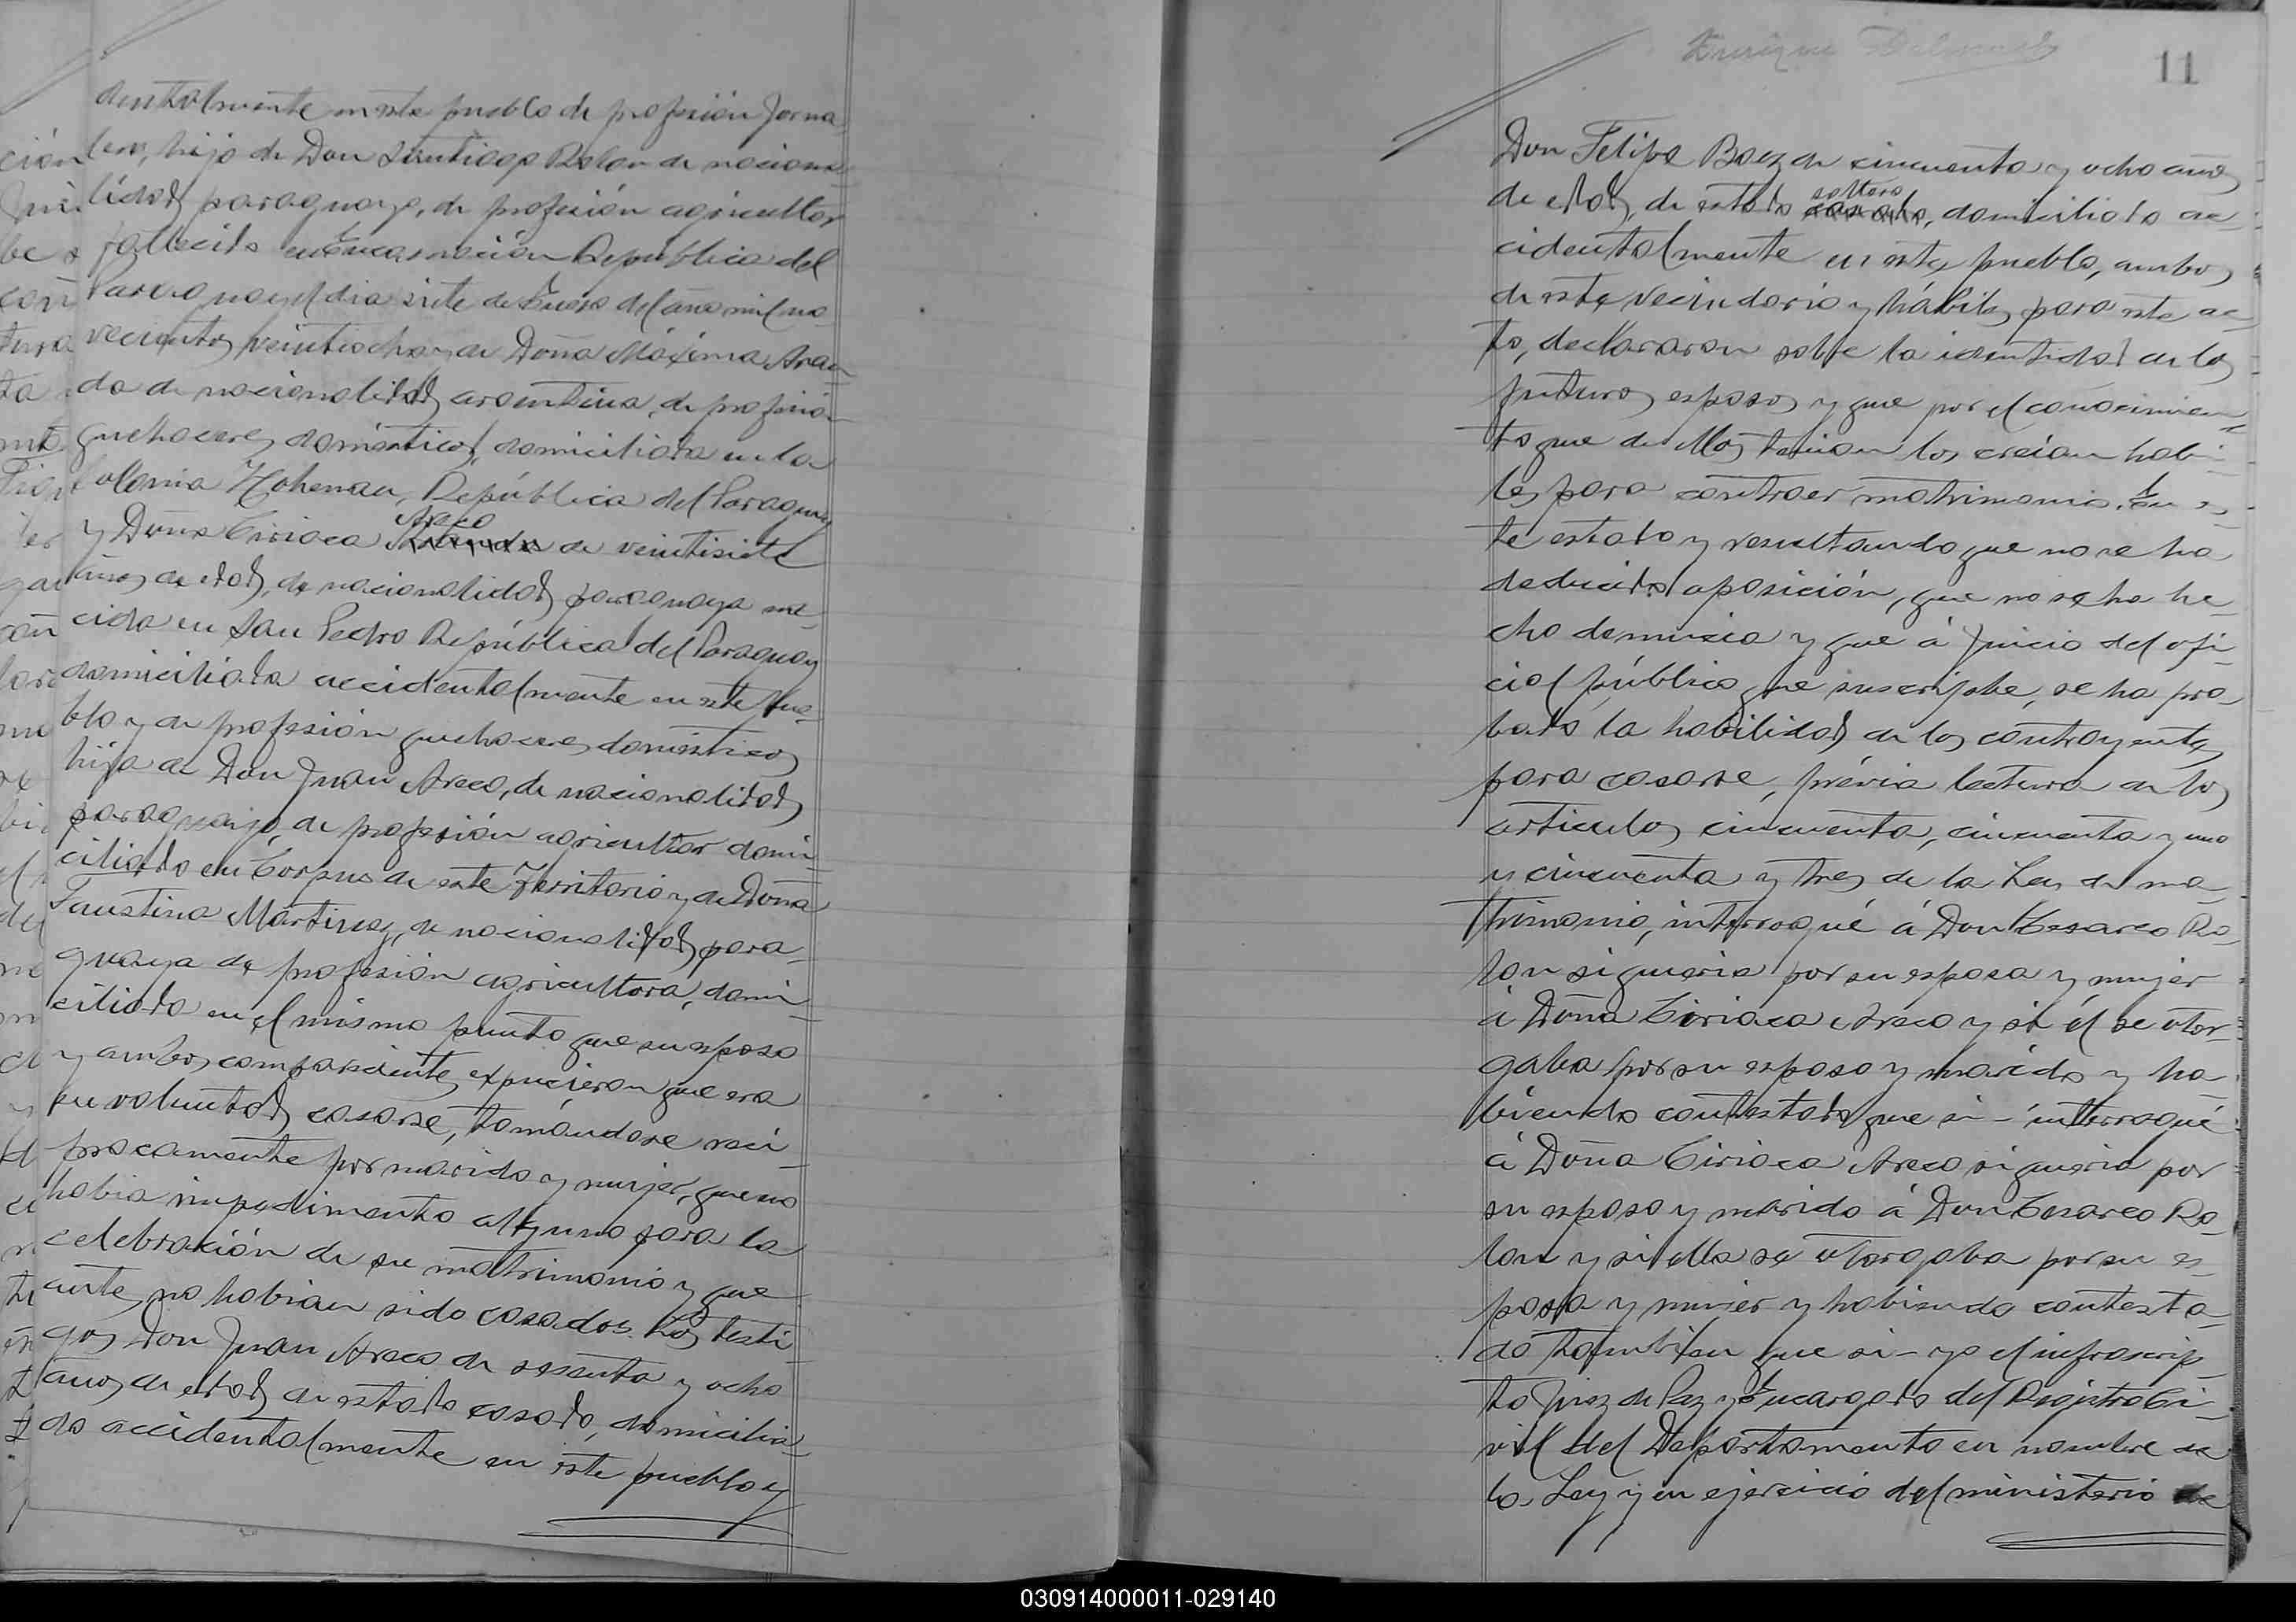 dentalmente en este pueblo de profesión jorna-
lero, hijo de Don Santiago Rolon de naciona-
lidad paraguaya, de profesión agricultor
fallecido en Encarnación República del
Paraguay el dia siete de Enero del año mil no-
vecientos veintiocho y de Doña Máxima Aran-
da de nacionalidad argentina, de profesión
quehaceres domésticos, domiciliada en la
Colonia Hohenau, República del Paraguay
Areco
y Doña Ciriaca de veintisiete
años de edad, de nacionalidad paraguaya na-
cida en San Pedro República del Paraguay
domiciliada accidentalmente en este pue-
blo y de profesión quehaceres domésticos
hija de Don Juan Areco, de nacionalidad
paraguayo, de profesión agricultor domi-
ciliado en Corpus de este Territorio y de Doña
Faustina Martinez, de nacionalidad para-
guaya de profesión agricultora, domi-
ciliada en el mismo punto que su esposo
y ambos comparecientes expucieron que era
su voluntad casarse, tomándose reci-
procamente por marido y mujer, que no
habia impedimento alguno para la
celebración de su matrimonio y que
antes no habian sido casados. Los testi-
gos Don Juan Areco de sesenta y ocho
años de edad de estado casado, domicilia-
do accidentalmente en este pueblo y
11
Don Felipe Baez de cincuenta y ocho años
soltero
de edad, de estado casado, domiciliado ac-
cidentalmente en este pueblo, ambos
de este vecindario y hábiles para este ac-
to, declararon sobre la identidad de los
futuros esposos y que por el conocimien-
to que de ellos tenian los creian habi-
les para contraer matrimonio. En es-
te estado y resultando que no se ha
deducido oposición, que no se ha he-
cho denuncia y que á juicio del ofi-
cial público que suscripbe, se ha pro-
bado la habilidad de los contrayentes
para casarse, prévia lectura de los
articulos cincuenta, cincuenta y uno
y cincuenta y tres de la Ley de ma-
trimonio, interrogué á Don Cesareo Ro-
lon si queria por su esposa y mujer
á Doña Ciriaca Areco y si él se otor-
gaba por su esposo y marido y ha-
biendo contestado que si - interrogué
á Doña Ciriaca Areco si queria por
su esposo y marido á Don Cesareo Ro-
lon y si ella se otorgaba por su es-
posa y mujer y habiendo contesta-
do también que si - yo el infrascrip-
to Juez de Paz y Encargado del Registro Ci-
vil del Departamento en nombre de
la Ley y en ejercicio del ministerio de
030914000011-029140